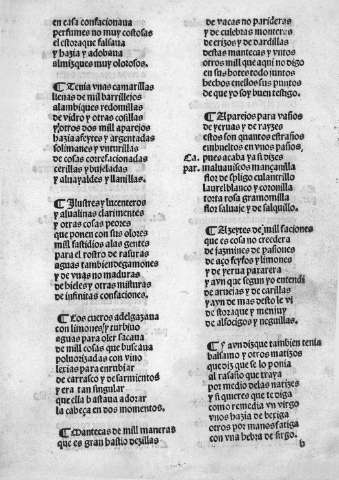 en casa confacionaua
perfumes no muy costosas
el estoraque falsaua
y hazia y adobaua
almizques muy olorosos.
¶ Tenia vnas camarillas
llenas de mil barrillejos
alambiques redomillas
de vidro y otras cosillas
y otros dos mil aparejos
hazia afeytes y argentadas
solimanes y vnturillas
de cosas confacionadas
cerillas y bujeladas
y aluayaldes y llanillas.
¶ Ilustres y lucenteros
y alualinas clarimentes
y otras cosas peores
que ponen con sus olores
mill fastidios alas gentes
para el rostro de rasuras
aguas tambien de gamones
y de vuas no maduras
de hieles y otras misturas
de infinitas confaciones.
¶ Los cueros adelgazaua
con limones y turbino
aguas para oler sacaua
de mil cosas que buscaua
poluorizadas con vino
lexias para enrubiar
de carrasco y de sarmientos
y era tan singular
que ella bastaua a dorar
la cabeça en dos momentos.
¶ Mantecas de mill maneras
que es gran hastio dezillas
de vacas no parideras
y de culebras monteras
de erizos y de dardillas
destas mantecas y vntos
otros mill que aqui no digo
en sus botes todo juntos
hechos en ellos sus puntos
de que yo soy buen testigo.
¶ Aparejos para vaños
de yeruas y de rayzes
estos son quantos estraños
embueltos en vnos paños,
Ca. pues acaba ya si dizes
par. maluauiscos mançanilla
flor de spligo culantrillo
laurel blanco y coronilla
torta rosa gramomilla
flor saluaje y de salquillo.
¶ Azeytes de mill faciones
que es cosa no creedera
de jazmines de pasiones
de açofeyfos y limones
y de yerua pararera
y avn que segun yo entendi
de arueias y de carillas
y avn de mas desto le vi
de storaque y menjuy
de alfocigos y neguillas.
¶ Y avn dizque tambien tenia
balsamo y otros matizos
que diz que se lo ponia
al rasaño que traya
por medio delas narizes
y si quieres que te diga
como remedia vn virgo
vnos hazia de bexiga
otros por mano sfatiga
con vna hebra de sirgo.
b